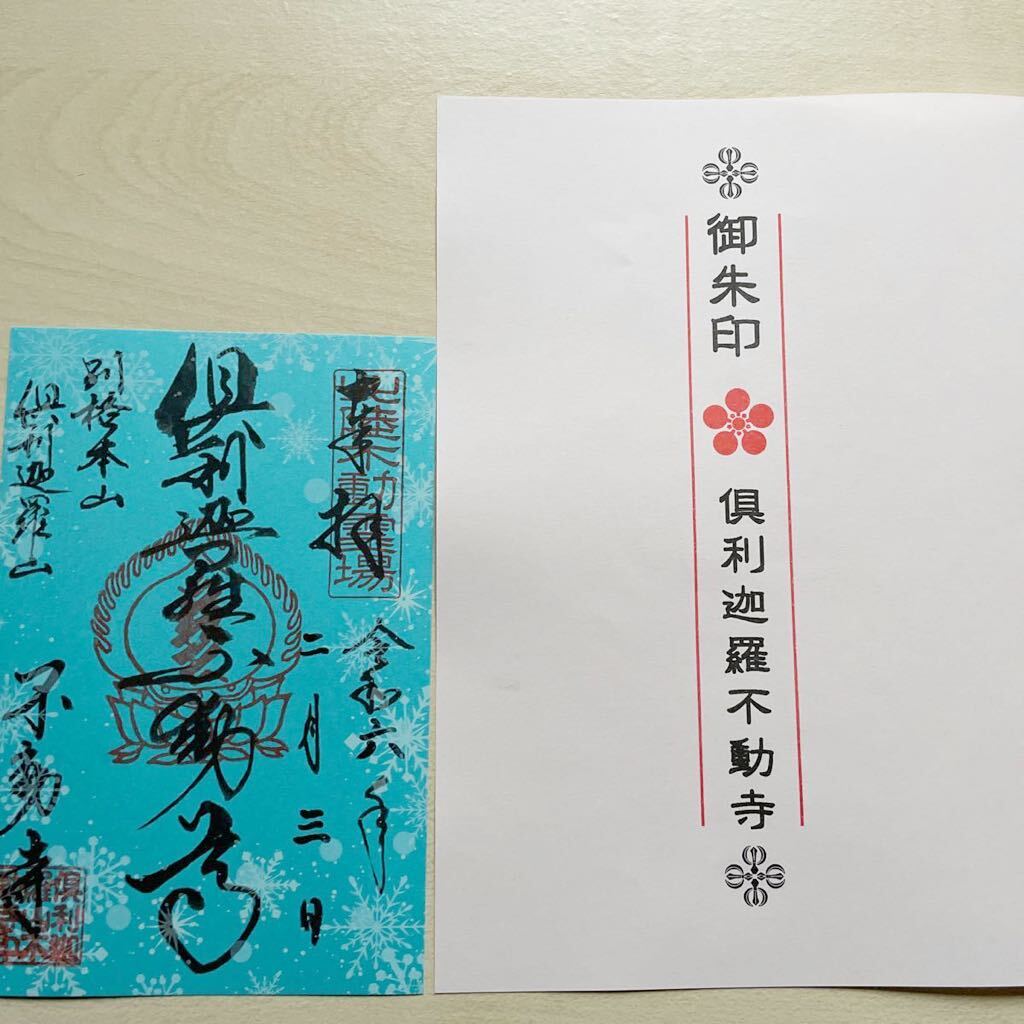 奉拝
北陸不動霊場
令和六年
二月三日
倶利迦羅不動尊
別格本山
倶利迦羅山
不動寺
御朱印
倶利迦羅不動寺